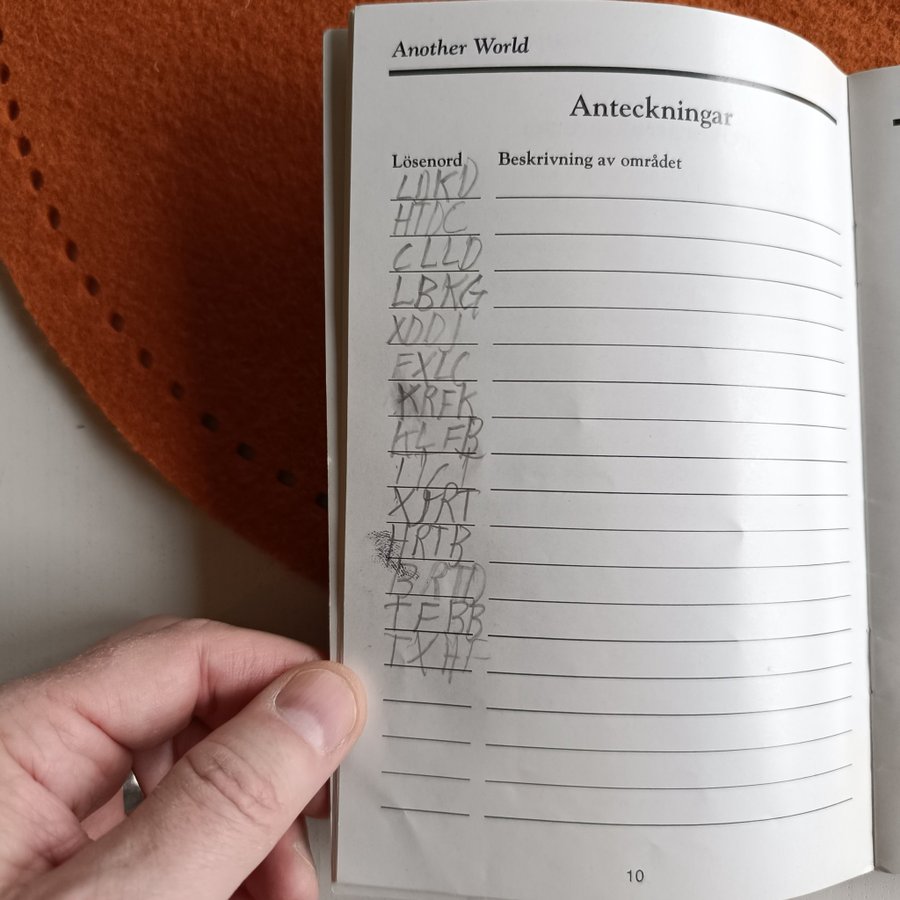 Another World
Anteckningar
Lösenord Beskrivning av området
LDKD
HTDC
CLLD
LBKG
XDDJ
FXLC
KRFK
KLFB
TTCT
XJRT
HRTB
BRTD
TFBB
TXHF
10